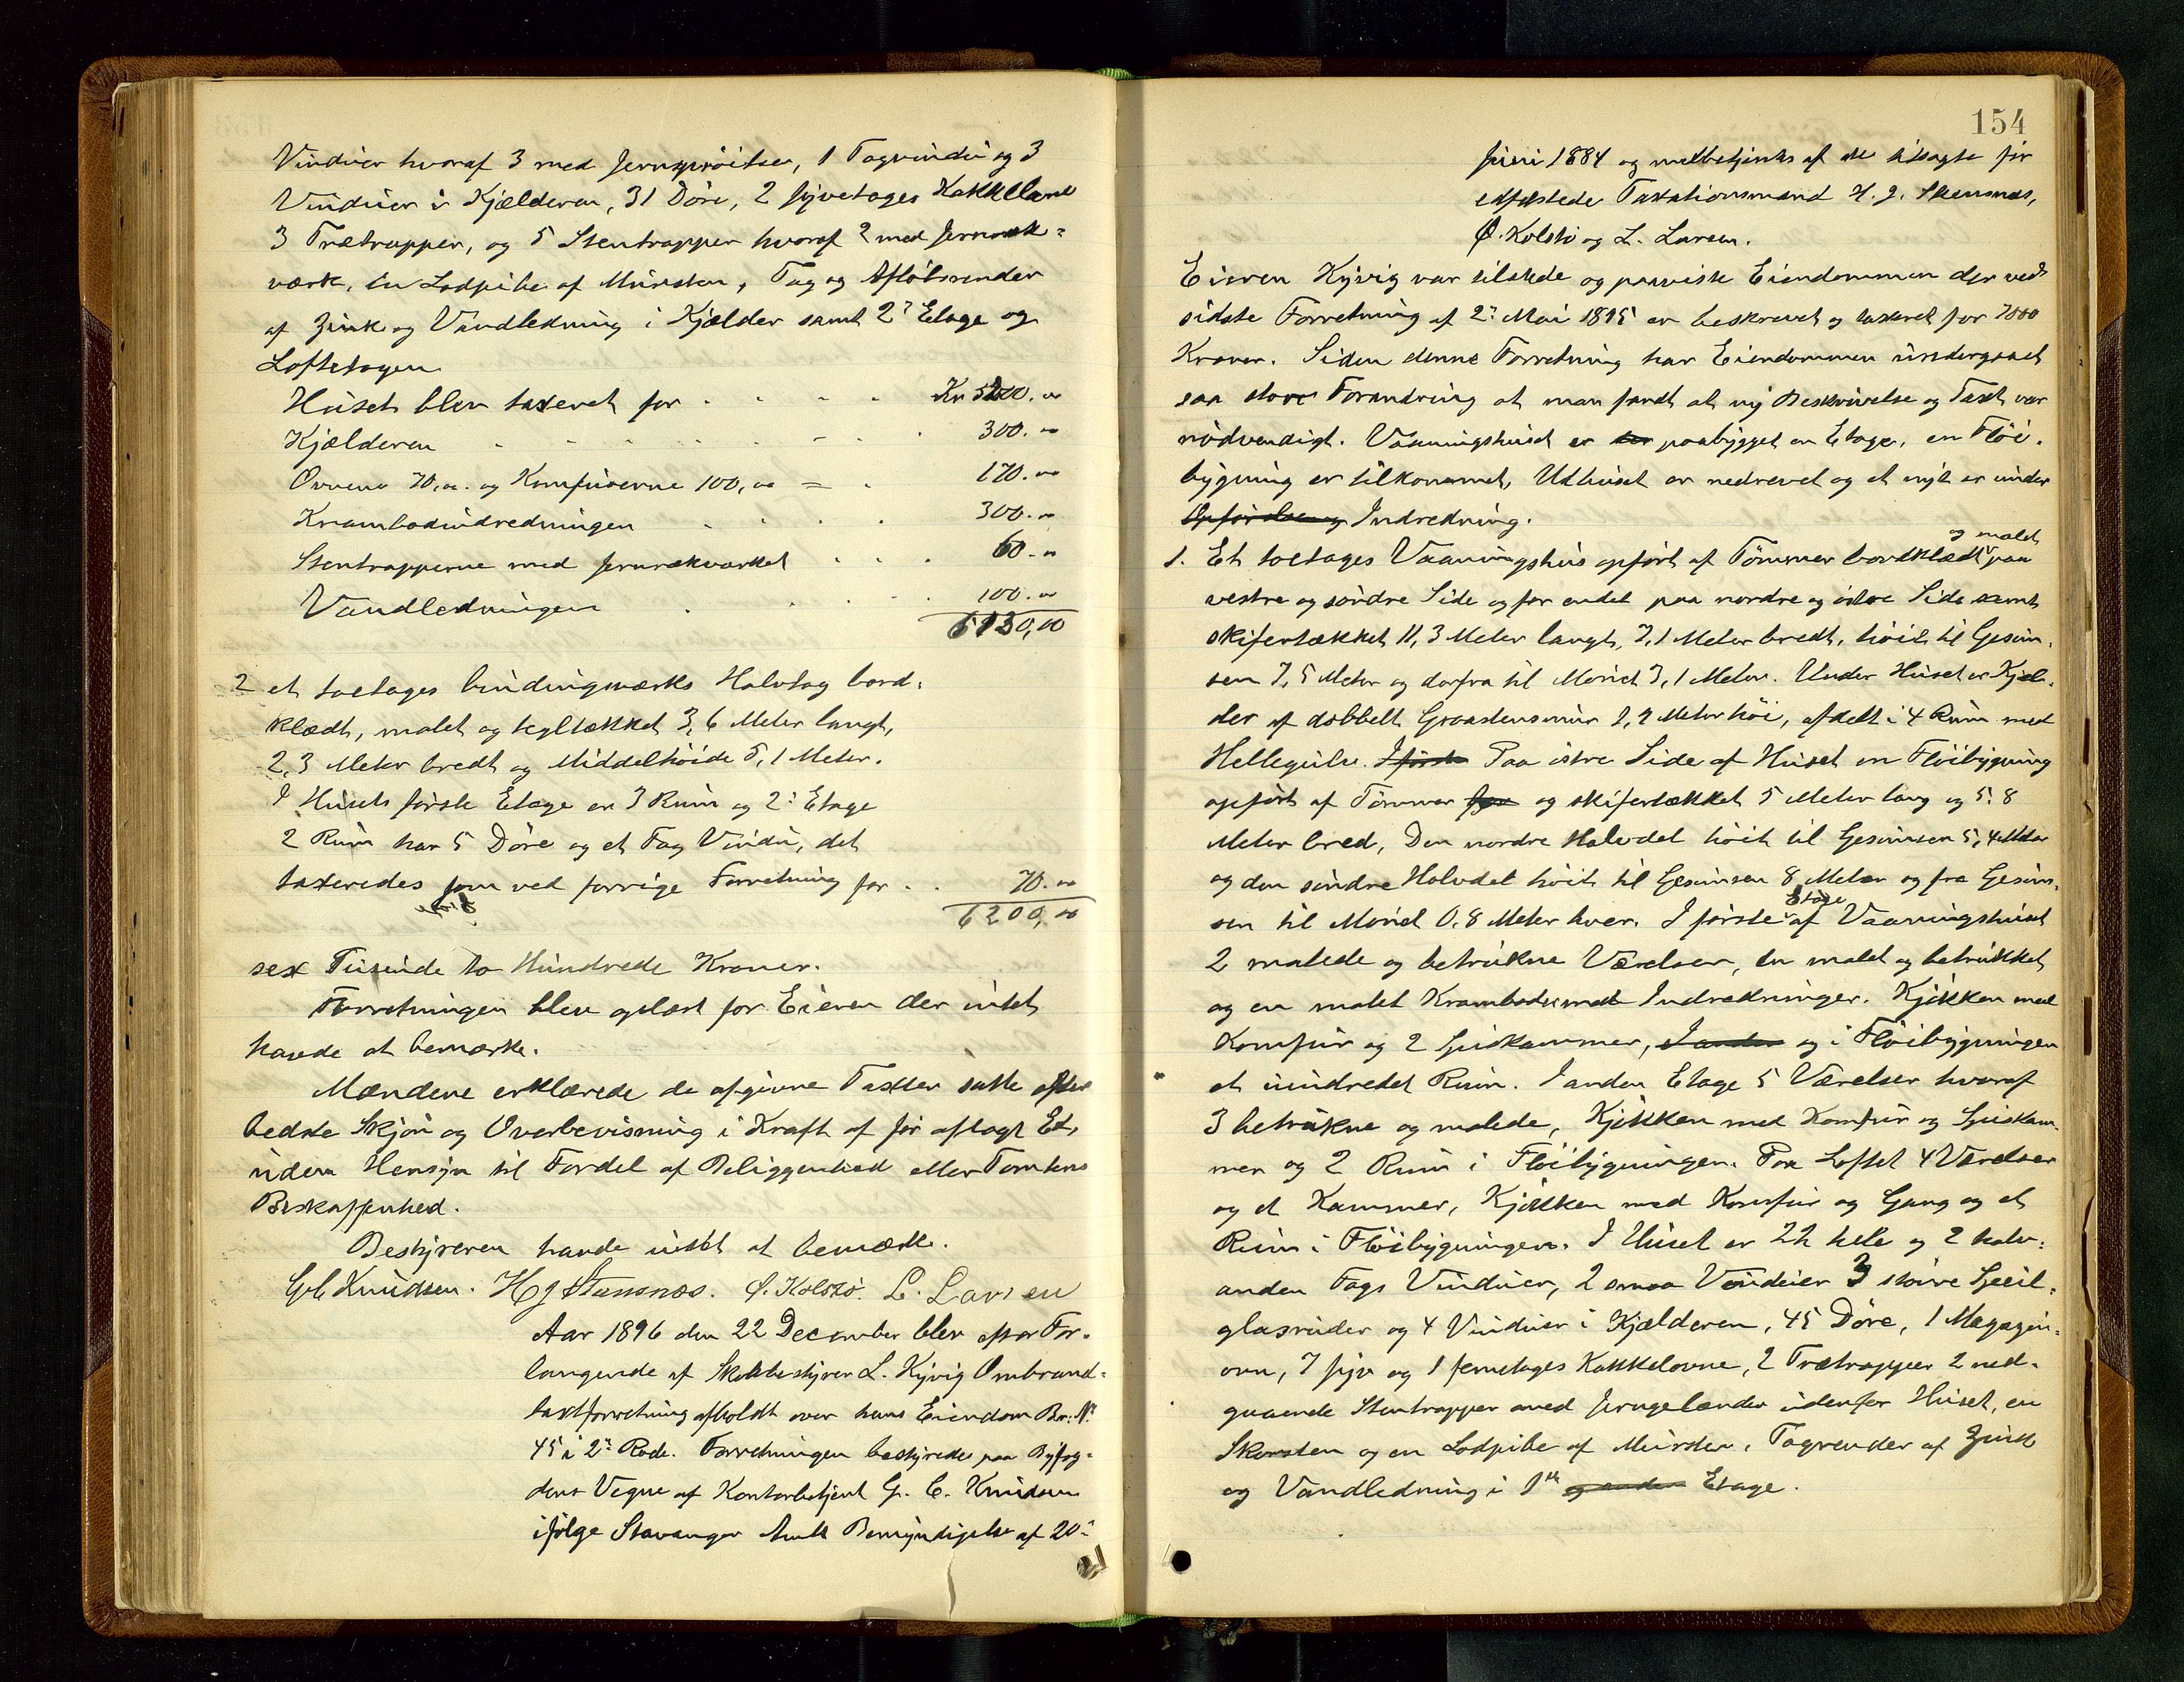 Vinduer hvoraf 3 med Jernsprøitser, 1 Tagvindu og 3
Vinduer i Kjælderen, 31 Döre, 2 fyvetages Kakkelovne
3 Trætrapper, og 5 Stentrapper hvoraf 2 med Jernræk=
værk, en Lodpibe af Mursten, Tag og Afløbsrender
af Zink og Vandledning i Kjælder samt 2: Etage og
Loftetagen.
Huset blev taxeret for Kr 5200.00
Kjælderen 300.00
Ovnene 70,00. og Komfurerne 100,00 = 170.00
Krambodindredningen 300.00
Stentrapperne med Jernrækværket 60.00
Vandledningen 100.00
6130,00
2 et toetages bindingsværks Halvtag bord-
klædt, malet og tegltækket 3,6 Meter langt,
2,3 Meter bredt og Middelhöide 5,1 Meter.
I Husets første Etage er 3 Rum og 2: Etage
2 Rum har 5 Döre og et Fag Vindu, det
taxeredes som ved forrige Forretning for 70.00
6200,00
sex Tusinde to Hundrede Kroner.
Forretningen blev oplæst for Eieren der intet
havde at bemærke.
Mændene erklærede de afgivne Taxter satte efter
bedste Skjön og Overbevisning i Kraft af før aflagt Ed,
uden Hensyn til Fordel af Beliggenhed eller Tomtens
Beskaffenhed.
Bestyreren havde intet at bemærke.
Knudsen. H J Stensnæs. Ø. Kolstø. L. Larsen
Aar 1896 den 22 December blev efter For-
langende af Skolebestyrer L. Kyvig Ombrand-
taxtforretning afholdt over hans Eiendom Br: N:
45 i 2: Rode. Forretningen bestyredes paa Byfog-
dens Vegne af Kontorbetjent G. C. Knudsen
ifølge Stavanger Amts Bemyndigelse af 20:
154
Juni 1884 og medbetjentes af de tilsagte før
edfæstede Taxationsmænd H. J. Stensnæs,
Ø. Kolstø og L. Larsen.
Eieren Kyvig var tilstede og paaviste Eiendommen der ved
sidste Forretning af 2: Mai 1895 er beskrevet og taxeret for 7000
Kroner. Siden denne Forretning har Eiendommen undergaaet
saa store Forandring at man fandt at ny Beskrivelse og Taxt var
nødvendigt. Vaaningshuset er paabygget en Etage, en Flöi-
bygning er tilkommet, Udhuset er nedrevet og et nyt er under
Opførelse og Indredning.
og malet
1. Et toetages Vaaningshus opført af Tömmer bordklædt paa
vestre og søndre Side og for endel paa nordre og östre Side samt
skifertækket 11,3 Meter langt, 7,1 Meter bredt, höit til Gesim-
sen 7,5 Meter og derfra til Mönet 3,1 Meter. Under Huset er Kjæl-
der af dobbelt Graastensmur 2,2 Meter höi, afdelt i 4 Rum med
Hellegulv. I første Paa østre Side af Huset en Flöibygning
opført af Tömmer og skifertækket 5 Meter lang og 5.8
Meter bred, Den nordre Halvdel höit til Gesimsen 5,4 Meter
og den søndre Halvdel höit til Gesimsen 8 Meter og fra Gesim-
Etage
sen til Mönet 0,8 Meter hver. I første af Vaaningshuset
2 malede og betrukne Værelser, en malet og betrukket
og en malet Krambod med Indredninger. Kjøkken med
Komfur og 2 Spiskammer, I anden og i Flöibygningen
et uindredet Rum. I anden Etage 5 Værelser hvoraf
3 betrukne og malede, Kjøkken med Komfur og Spiskam-
mer og 2 Rum i Flöibygningen. Paa Loftet 4 Værelser
og et Kammer, Kjøkken med Komfur og Gang og et
Rum i Flöibygningen. I Huset er 22 hele og 2 halv-
anden Fags Vinduer, 2 smaa Vinduer 3 større Speil-
glasruder og 4 Vinduer i Kjælderen, 45 Döre, 1 Magazin-
ovn, 7 fyr og 1 femetages Kakkelovne, 2 Trætrapper 2 ned-
gaaende Stentrapper med Jerngelænder udenfor Huset, en
Skorsten og en Lodpibe af Mursten, Tagrender af Zink
og Vandledning i 1ste og anden Etage.